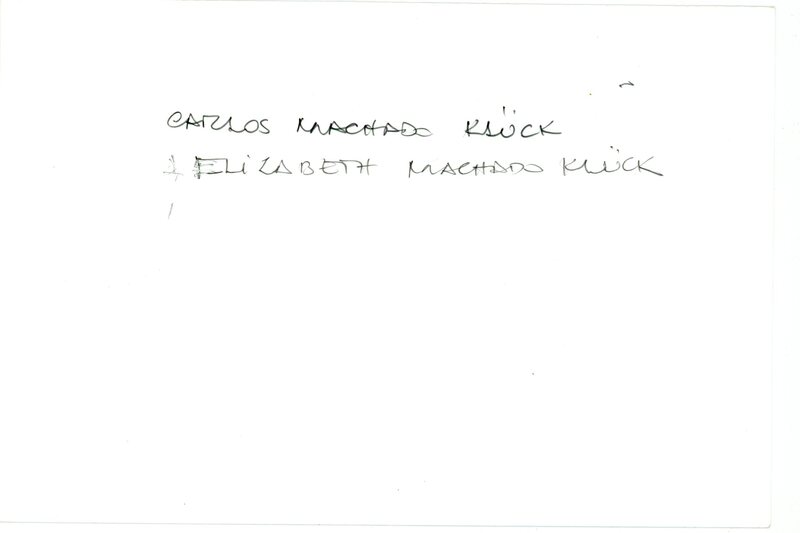 CARLOS MACHADO KLÜCK
ELIZABETH MACHADO KLÜCK